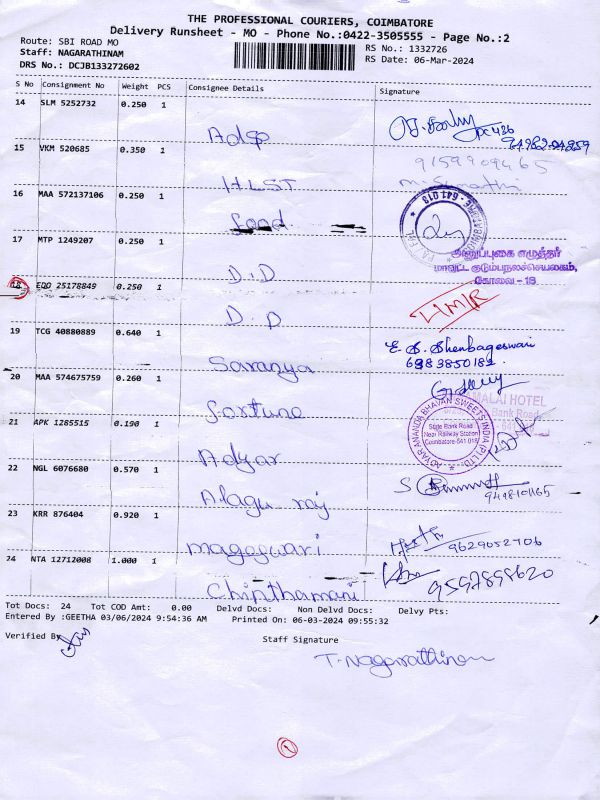 THE PROFESSIONAL COURIERS, COIMBATORE
Delivery Runsheet - MO - Phone No.:0422-3505555 - Page No.:2
Route: SBI ROAD MO
RS No.: 1332726
Staff: NAGARATHINAM
RS Date: 06-Mar-2024
DRS No.: DCJB133272602
S No Consignment No Weight PCS Consignee Details Signature
14 SLM 5252732 0.250 1
Adsp
15 VKM 520685 0.350 1
HLST
9159909465
16 MAA 572137106 0.250 1
food
641 018
17 MTP 1249207 0.250 1
D.D
அனுப்புகை எழுத்தர்
மாவட்ட குடும்பநலச்செயலகம்,
கோவை - 18
18 EDO 25178849 0.250 1
D.D
19 TCG 40880889 0.640 1
Saranya
E. S. Shenbageswari
6383850182
20 MAA 574675759 0.260 1
fortune
MALAI HOTEL
Bank Road
21 APK 1285515 0.190 1
Adyar
ADYAR ANANDA BHAVAN SWEETS INDIA (P) LTD
State Bank Road
Near Railway Station
Coimbatore-641 018
22 NGL 6076680 0.570 1
Alagu raj
23 KRR 876404 0.920 1
mageswari
9629052706
24 NTA 12712008 1.000 1
Chinthamani
9597898620
Tot Docs: 24 Tot COD Amt: 0.00 Delvd Docs: Non Delvd Docs: Delvy Pts:
Entered By :GEETHA 03/06/2024 9:54:36 AM Printed On: 06-03-2024 09:55:32
Verified By
Staff Signature
T. Nagarathinam
1